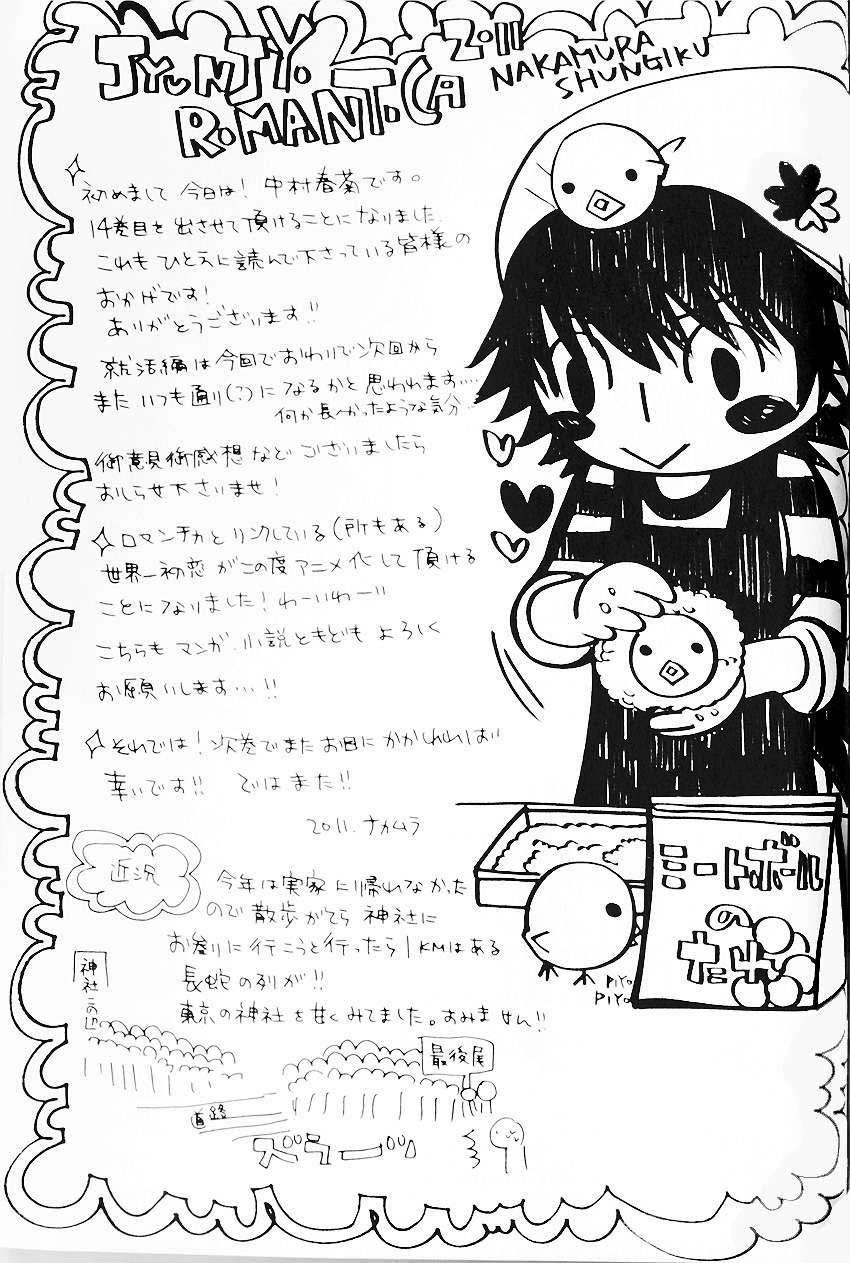 JYUNJYO
ROMANTICA
2011
NAKAMURA
SHUNGIKU
初めまして 今日は! 中村春菊です。
14巻目を出させて頂けることになりました。
これもひとえに読んで下さっている皆様の
おかげです!
ありがとうございます!!
就活編は今回でおわりで次回から
またいつも通り(?)になるかと思われます…
何か長〜かったような気分…
御意見御感想などございましたら
おしらせ下さいませ!
ロマンチカとリンクしている(所もある)
世界一初恋がこの度アニメ化して頂ける
ことになりました! わーいわーい
こちらもマンガ、小説ともども よろしく
お願いします…!!
それでは! 次巻でまたお目にかかれれば
幸いです!! ではまた!!
2011. ナカムラ
近況
今年は実家に帰れなかった
ので散歩がてら 神社に
お参りに行こうと行ったら1KMはある
長蛇の列が!!
東京の神社を甘くみてました。すみません!!
神社
最後尾
道路
ズラーッ
ミートボール
の
たね
PIYO
PIYO